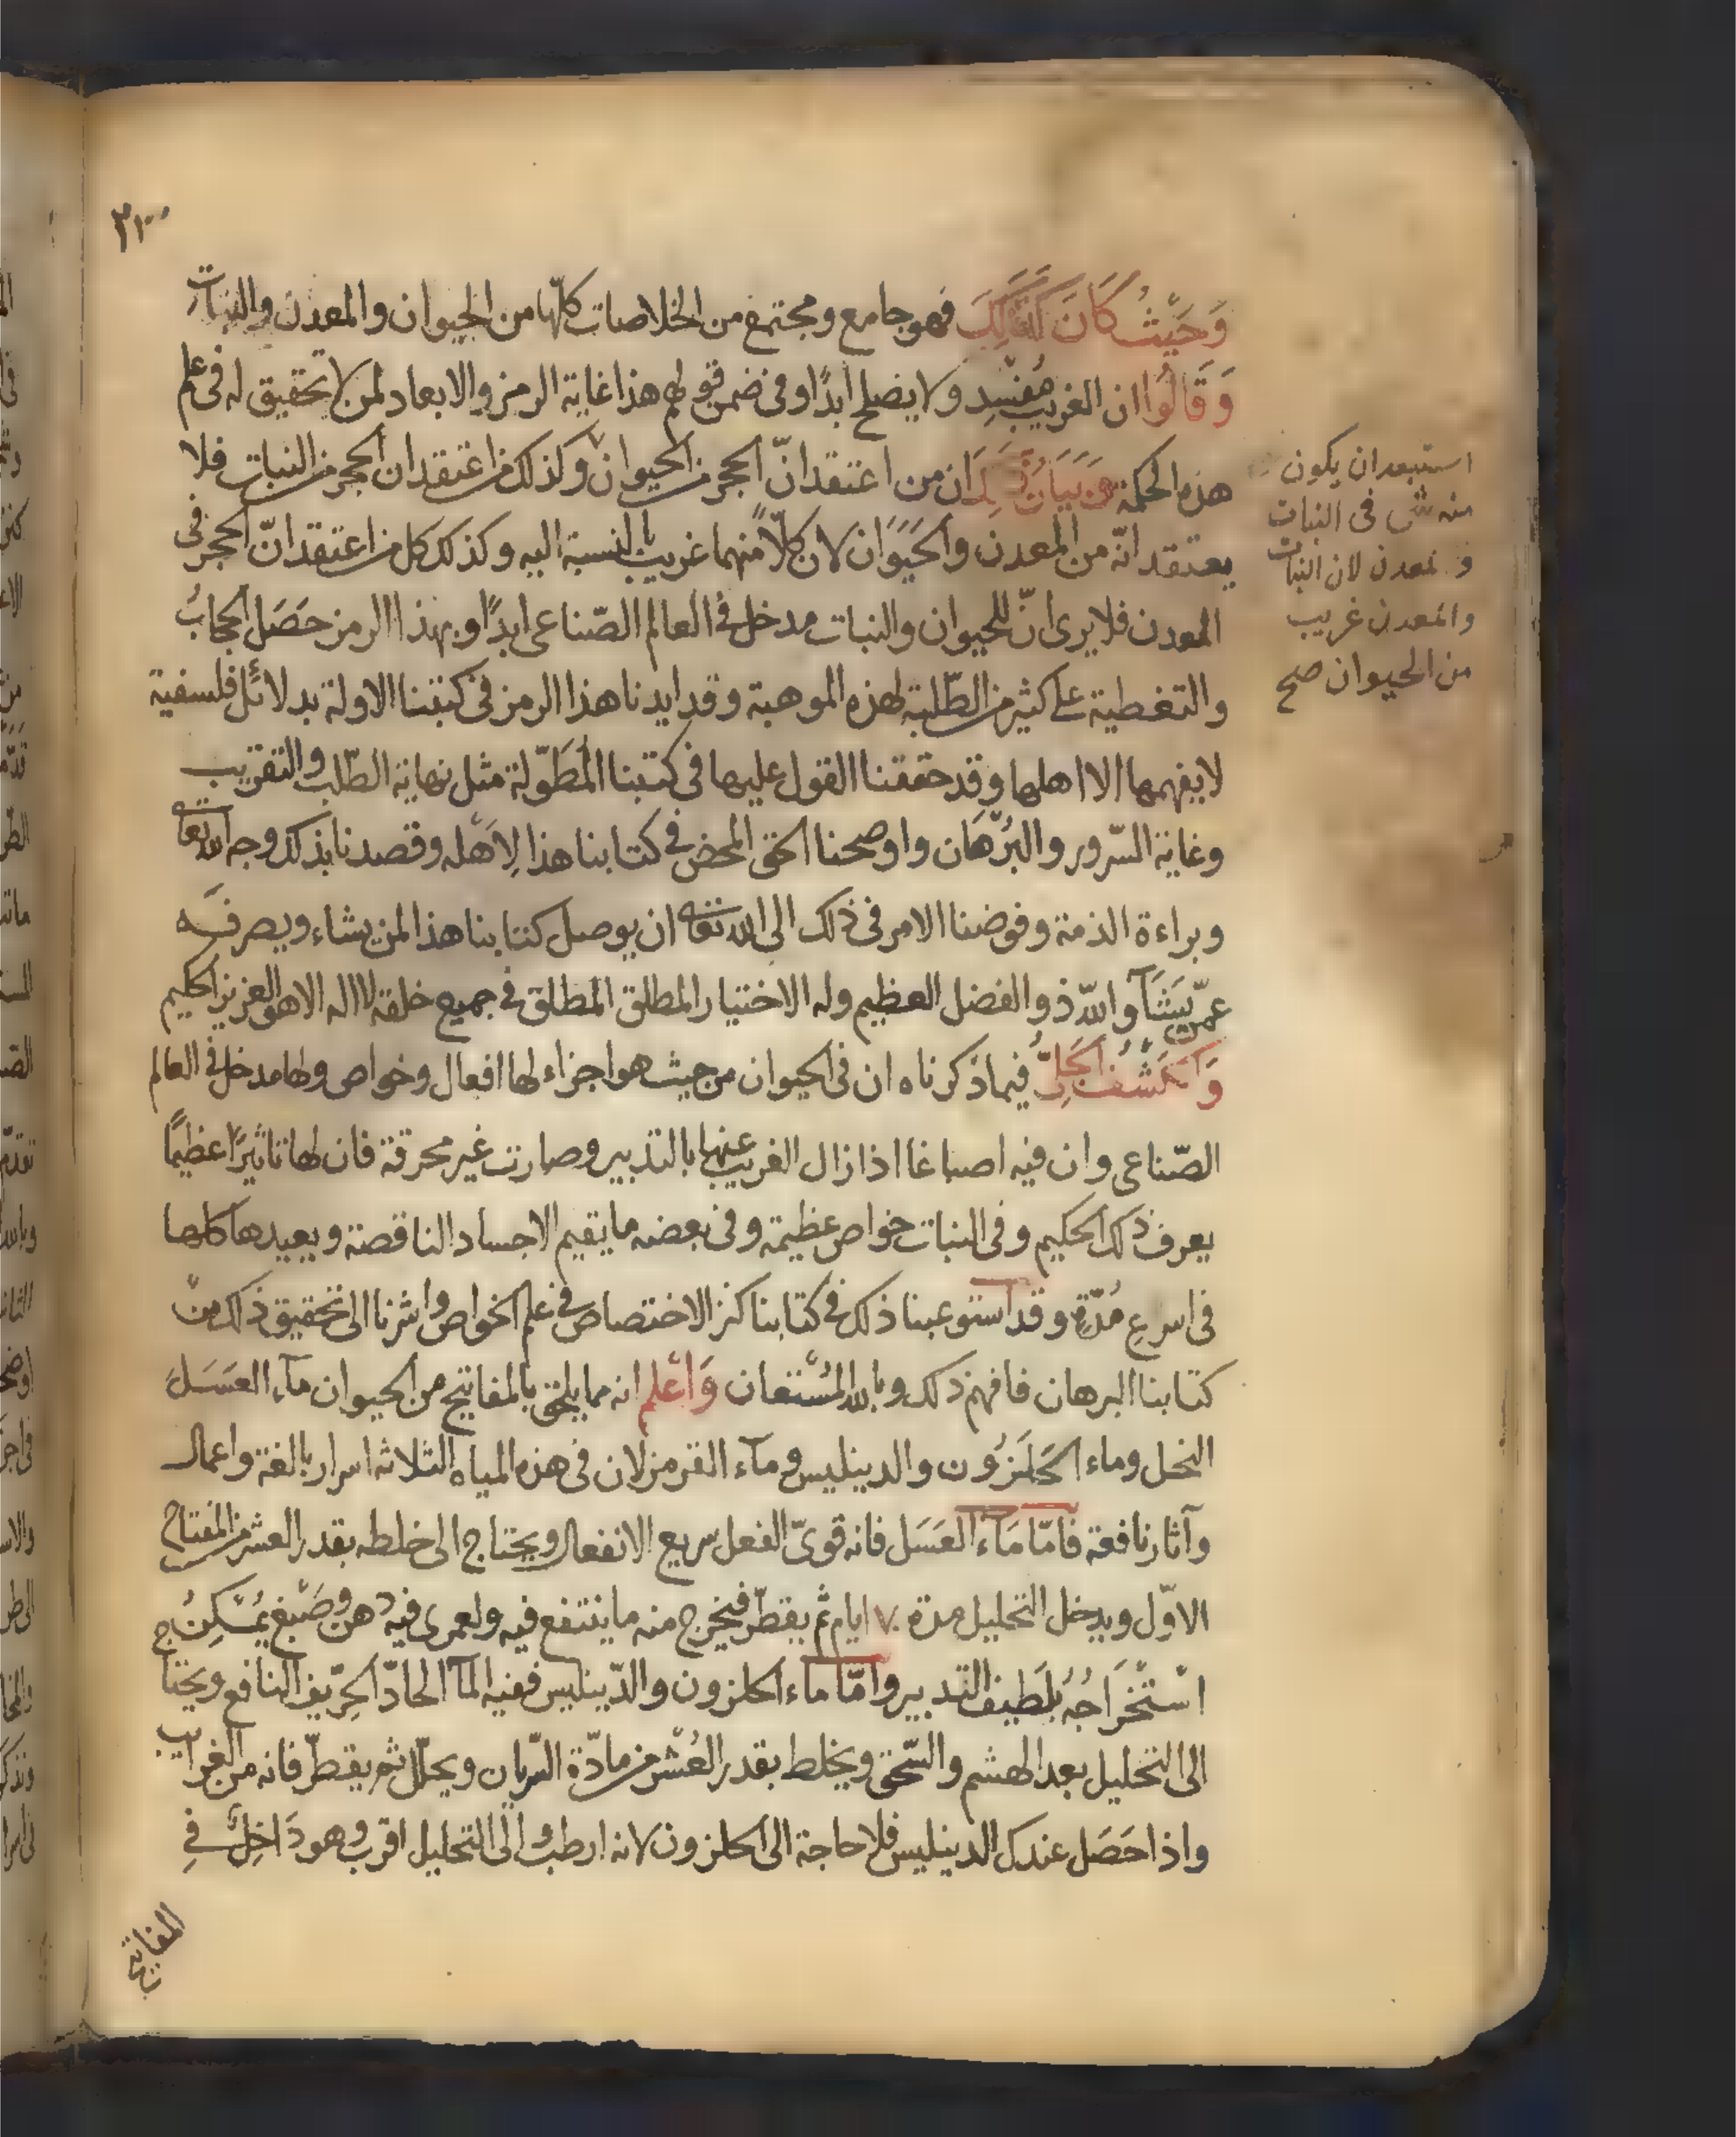 وَحَيْثُ كَانَ كَذَلِكَ فهو جامع ومجتمع من الخلاصات كلّها من الحيوان والمعدن والنبات
وَقَالُوا ان الغريب مُفْسِد ولا يصلح ابدًا وفى ضمن قولهم هذا غاية الرمز والابعاد لمن لا تحقيق له فى علم
هذه الحكمة وبيان ذلك ان من اعتقد انّ الحجر من الحيوان وكذلك من اعتقد ان الحجر من النبات فلا
يعتقد انّه من المعدن والحَيَوَان لان كلّاً منهما غريب بالنسبة اليه وكذلك كل من اعتقد انّ الحجر فى
المعدن فلا يرى انّ للحيوان والنبات مدخل فى العالم الصّناعى ابدًا وبهذا الرمز حَصَل الحجابُ
والتغطية على كثير من الطّلبة لهذه الموهبة وقد ايدنا هذا الرمز فى كتبنا الاولة بدلائل فلسفية
لا يفهمها الا اهلها وقد حققنا القول عليها فى كتبنا المطَوّلة مثل نهاية الطّلب والتقريب
وغاية السّرور والبُرْهَان واوضحنا الحق المحض فى كتابنا هذا لِاَهْله وقصدنا بذلك وجه الله تعا
وبراءة الذمة وفوضنا الامر فى ذلك الى الله تعا ان يوصل كتابنا هذا لمن يشاء ويصرفه
عمّن يَشَآ والله ذو الفضل العظيم وله الاختيار المطلق المطلق فى جميع خلقه لا اله الا هو العزيز الحكيم
وَالكَشْفُ الجَلِىُّ فيما ذكرناه ان فى الحيوان من حيث هو اجزاء لها افعال وخواص ولها مدخل فى العالم
الصّناعى وان فيه اصباغا اذا زال الغريب عنها بالتدبير وصارت غير محرقة فان لها تاثيرًا عظيمًا
يعرف ذلك الحكيم وفى النبات خواص عظيمة وفى بعضه ما يقيم الاجساد الناقصة ويعيدها كلها
فى اسرع مُدّةٍ وقد استوعبنا ذلك فى كتابنا كنز الاختصاص فى علم الخواص واشرنا الى تحقيق ذلك من
كتابنا البرهان فافهم ذلك وبالله المُسْتعان وَاعْلم انه مما يلحق بالمفاتيح من الحيوان مآء العَسَل
النحل وماء الحَلَزُون والدينليس ومآء القرمز لان فى هذه المياه الثلاثه اسرار بالغة واعمال
وآثار نافعة فامّا مَآء العَسَل فانه قوىّ الفعل سريع الانفعال ويحتاج الى خلطه بقدر العشر من المفتاح
الاوّل ويدخل التحليل مدة ٧ ايام ثم يقطّر فيخرج منه ما ينتفع فيه ولعمرى فيه دهن وصَبْغ يُمْكِنُ
اسْتْخرَاجُهُ بلَطيف التدبير وامّا ماء الحلزون والدّينليس ففيه المآ الحادّ الحِرّيف النافع ويحتاج
الى التحليل بعد الهشم والسّحق ويخلط بقدر العُشْر من مادّة السّريان ويحلّل ثم يقطّر فانه من الغرايب
واذا حَصَل عندك الدينليس فلا حاجة الى الحلزون لانه ارطب والى التحليل اقرب وهو دَاخِلٌ فى
المفاتيح
استبعد ان يكون
منه شى فى النبات
والمعدن لان النبات
والمعدن غريب
من الحيوان صح